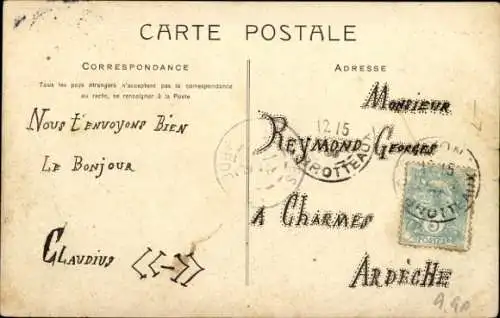 CARTE POSTALE
CORRESPONDANCE
Tous les pays étrangers n'acceptent pas la correspondance
au recto, se renseigner à la Poste
Nous t'envoyons Bien
Le Bonjour
Claudius
ADRESSE
Monsieur
Reymond Georges
A Charmes
Ardèche
12 15
BROTTEAUX
12 15
BROTTEAUX
5
POSTES